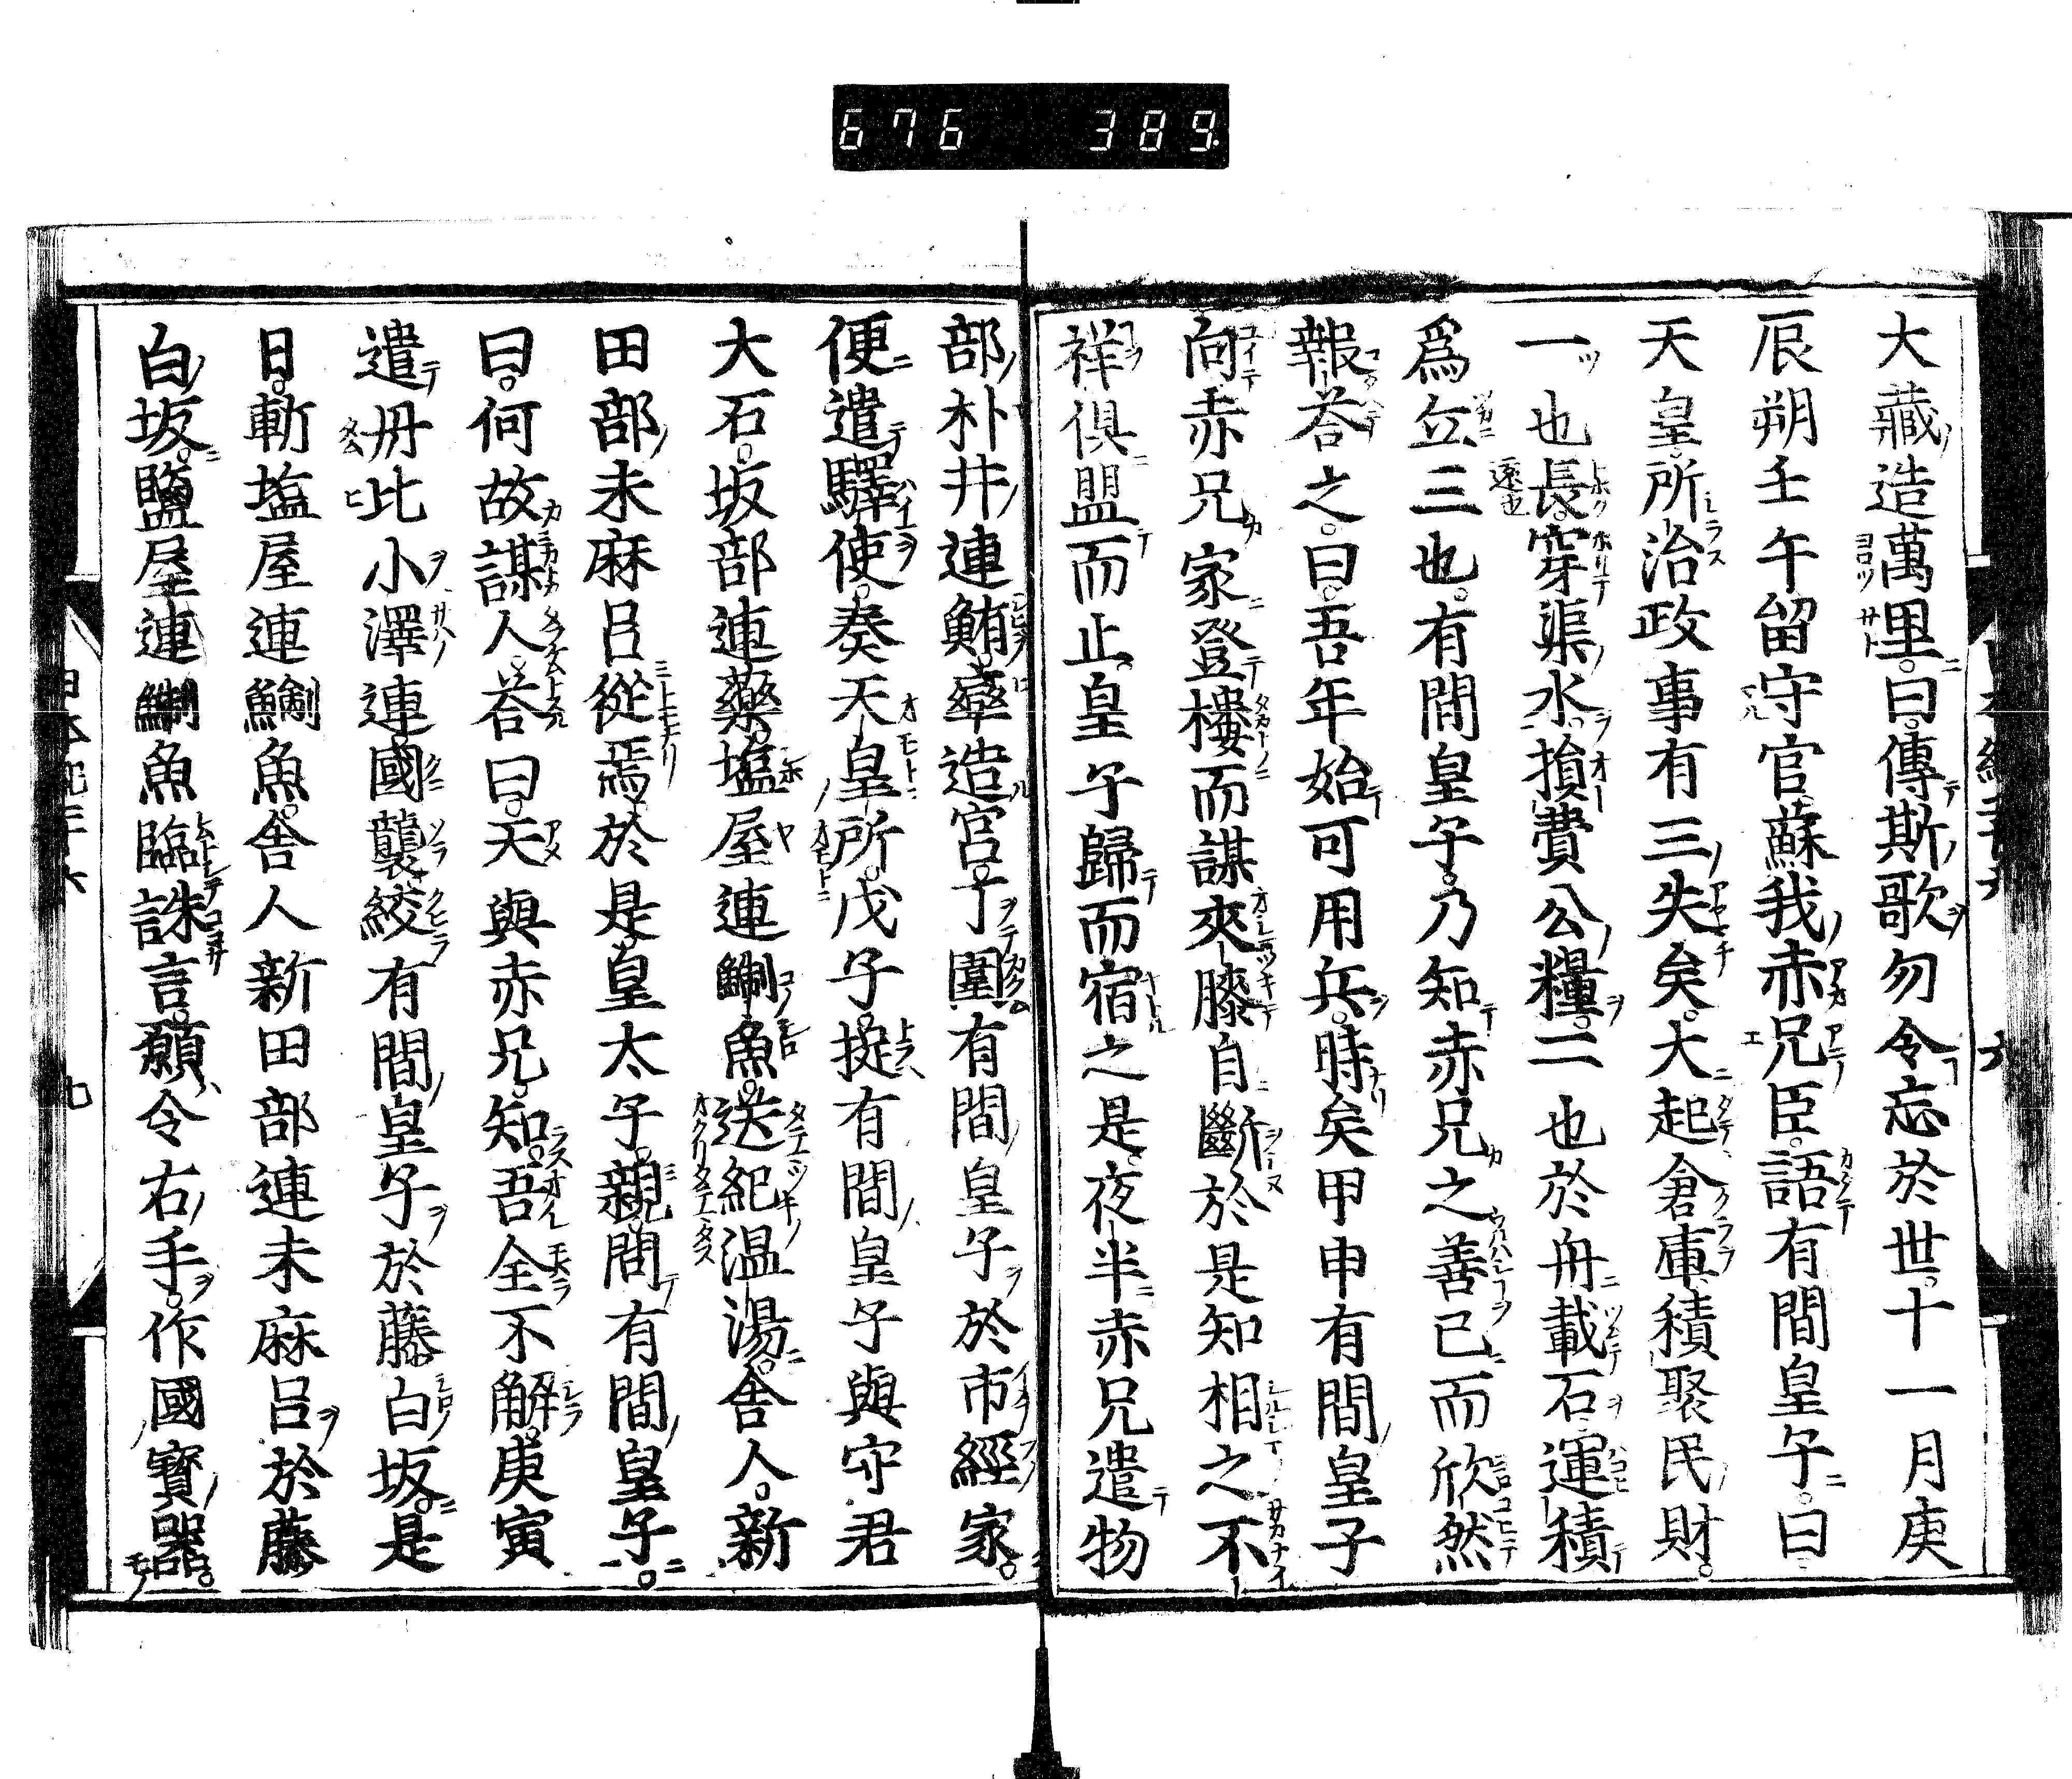 676 389
大藏造萬里。曰。傳斯歌勿令忘於世。十一月庚
辰朔壬午留守官蘇我赤兄臣。語有間皇子。曰
天皇所治政事有三失矣。大起倉庫積聚民財。
一也長。穿渠水。損費公糧。二也於舟載石運積
爲丘三也。有間皇子。乃知赤兄之善己而欣然
報荅之。曰。吾年始可用兵。時矣甲申有間皇子
向赤兄家登樓而謀夾膝自斷於是知相之不
祥俱盟而止。皇子歸而宿之是夜半赤兄遣物
部朴井連鮪。率造宮丁圍有間皇子於市經家。
便遣驛使。奏天皇所。戊子捉有間皇子與守君
大石。坂部連藥。塩屋連鯯魚。送紀温湯。舍人。新
田部未麻呂從焉。於是。皇太子。親問有間皇子。
曰。何故謀人荅曰。天與赤兄。知。吾全不解。庚寅
遣丹比小澤連國襲。絞有間皇子於藤白坂。是
日。斬塩屋連鯯魚。舍人新田部連未麻呂於藤
白坂。鹽屋連鯯魚臨誅言。願令右手。作國寶器。